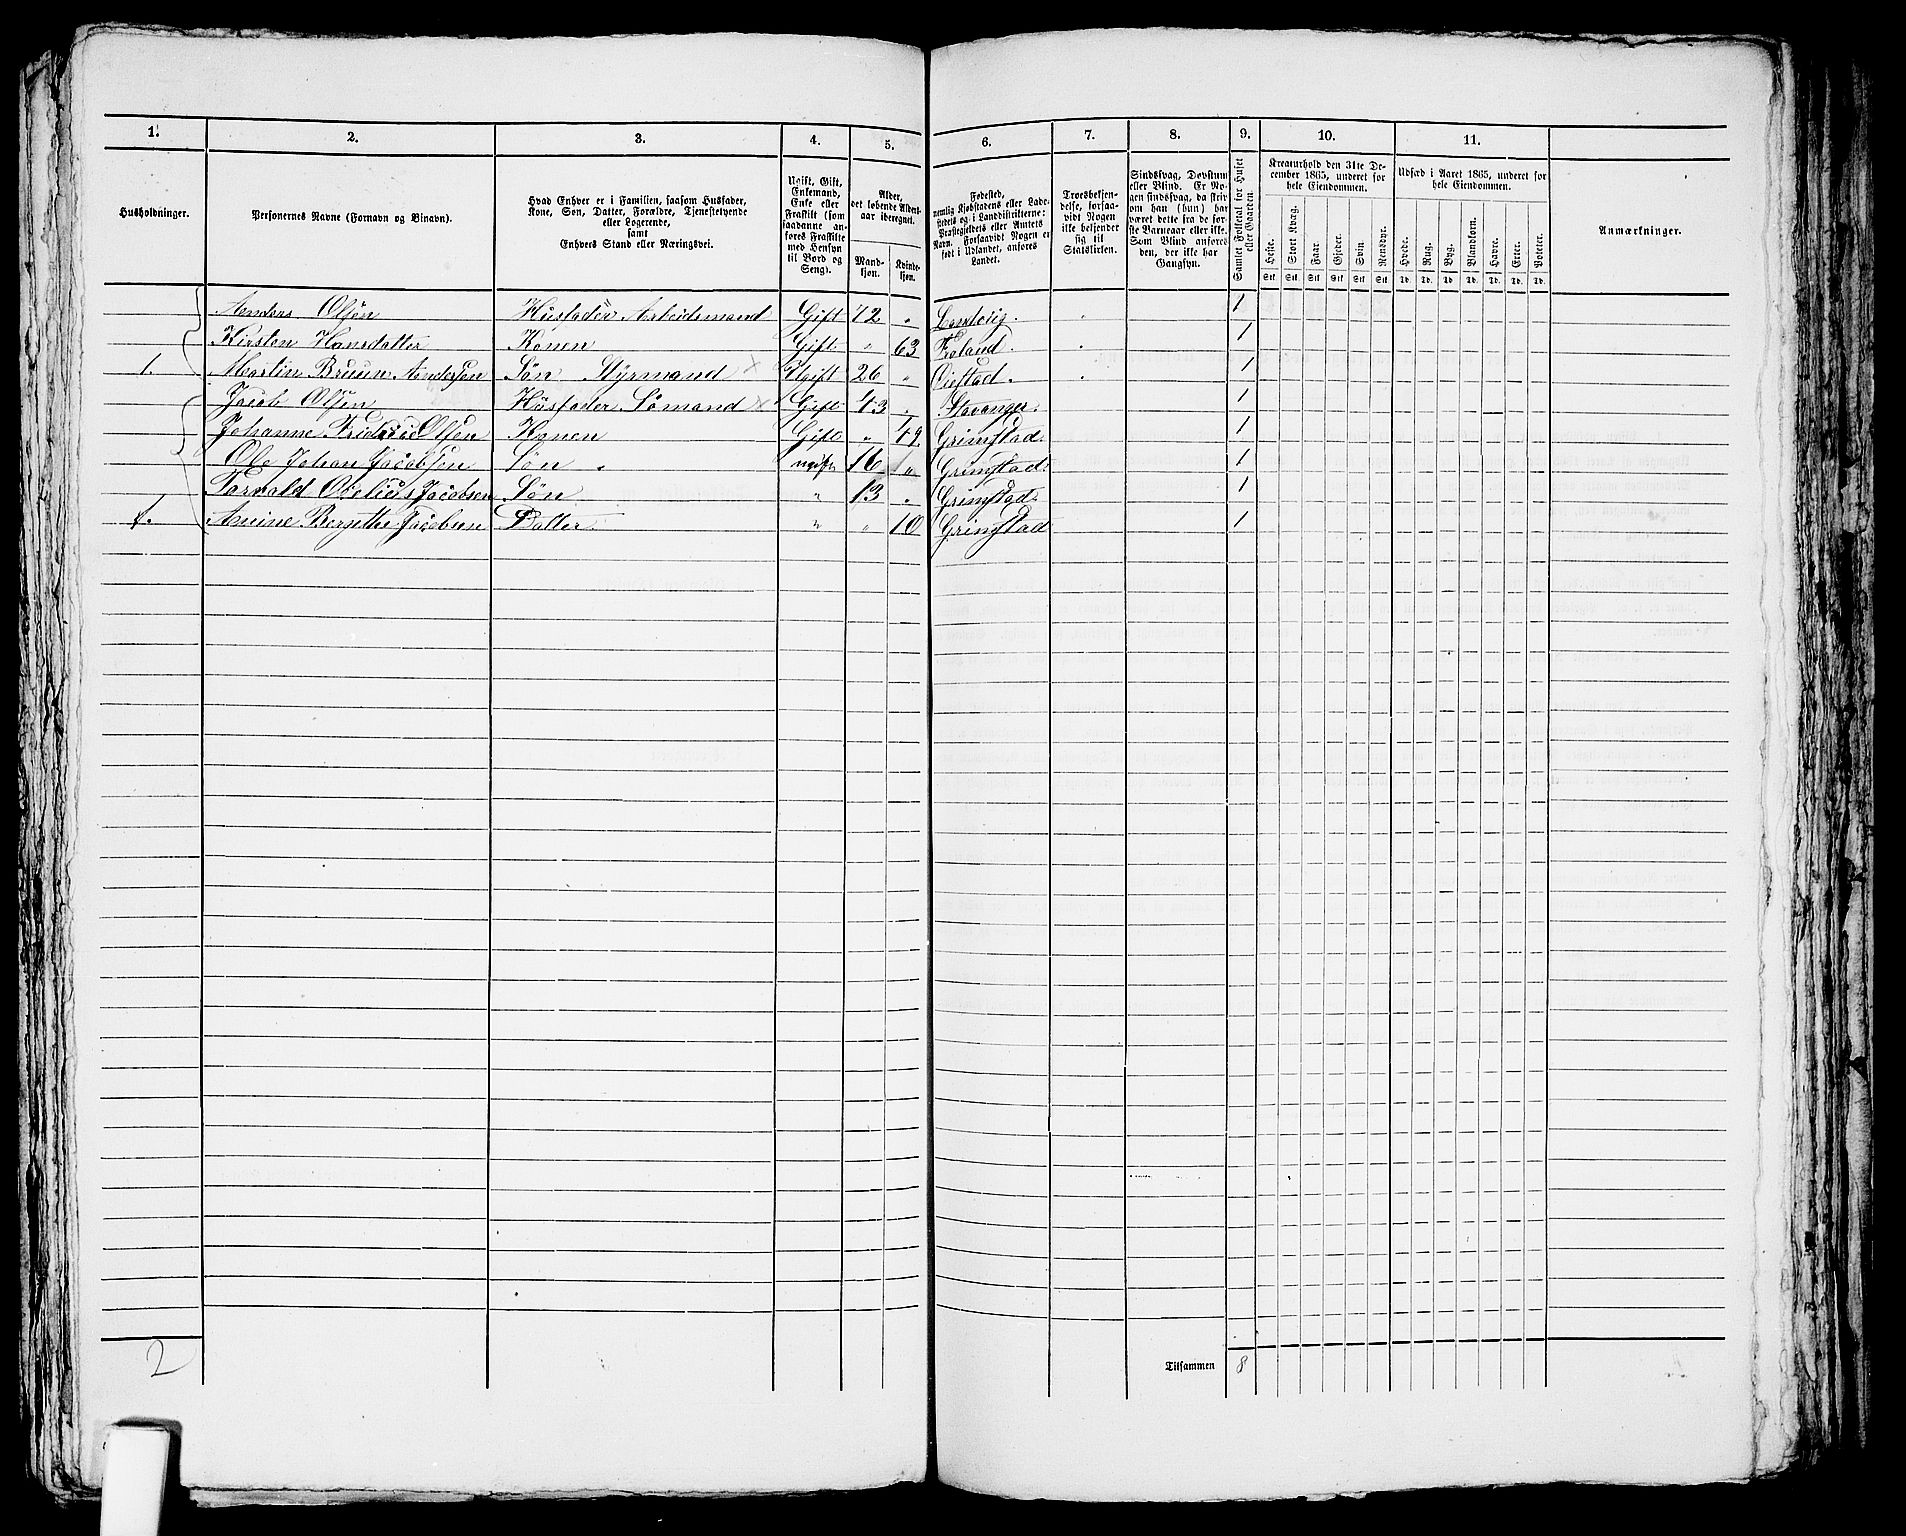 1. 2. 3. 4. 5. 6. 7. 8. 9. 10. 11.
Husholdninger.
Personernes Navne (Fornavn og Binavn).
Hvad Enhver er i Familien, saasom Husfader,
Kone, Søn, Datter, Forældre, Tjenestetyende
eller Logerende,
samt
Enhvers Stand eller Næringsvei.
Ugift, Gift,
Enkemand,
Enke eller
Fraskilt (som
saadanne an-
føres Fraskilte
med Hensyn
til Bord og
Seng).
Alder,
det løbende Alders-
aar iberegnet.
Mand-
kjøn.
Kvinde-
kjøn.
Fødested,
nemlig Kjøbstadens eller Lade-
stedets og i Landdistrikterne:
Præstegjeldets eller Amtets
Navn. Forsaavidt Nogen er
født i Udlandet, anføres
Landet.
Troesbekjen-
delse, forsaa-
vidt Nogen
ikke bekjender
sig til
Statskirken.
Sindssvag, Døvstum
eller Blind. Er No-
gen sindssvag, da skriv
om han (hun) har
været dette fra de før-
ste Barneaar eller ikke.
Som Blind anføres
den, der ikke har
Gangsyn.
Samlet Folketal for Huset
eller Gaarden.
Kreaturhold den 31te De-
cember 1865, underet for
hele Eiendommen.
Heste. Stort Kvæg. Faar. Gjeder. Svin. Rensdyr.
Stk. Stk. Stk. Stk. Stk. Stk.
Udsæd i Aaret 1865, underet for
hele Eiendommen.
Hvede. Rug. Byg. Blandkorn. Havre. Erter. Poteter.
Td. Td. Td. Td. Td. Td. Td.
Anmærkninger.
Anders Olsen Husfader Arbeidsmand Gift 72 " Landvig. 1
Kirsten Hansdatter Konen Gift " 63 Froland. 1
1. Martin Bruun Andersen Søn Styrmand Ugift 26 " Øiestad. 1
Jacob Olsen Husfader Sømand Gift 43 " Stavanger. 1
Johanne Olsen Konen Gift " 49. Grimstad. 1
Ole Johan Jacobsen Søn ugift 16 " Grimstad. 1
Jacobsen Søn " 13 " Grimstad. 1
1. Jacobsen Datter " " 10 Grimstad 1
2
Tilsammen 8